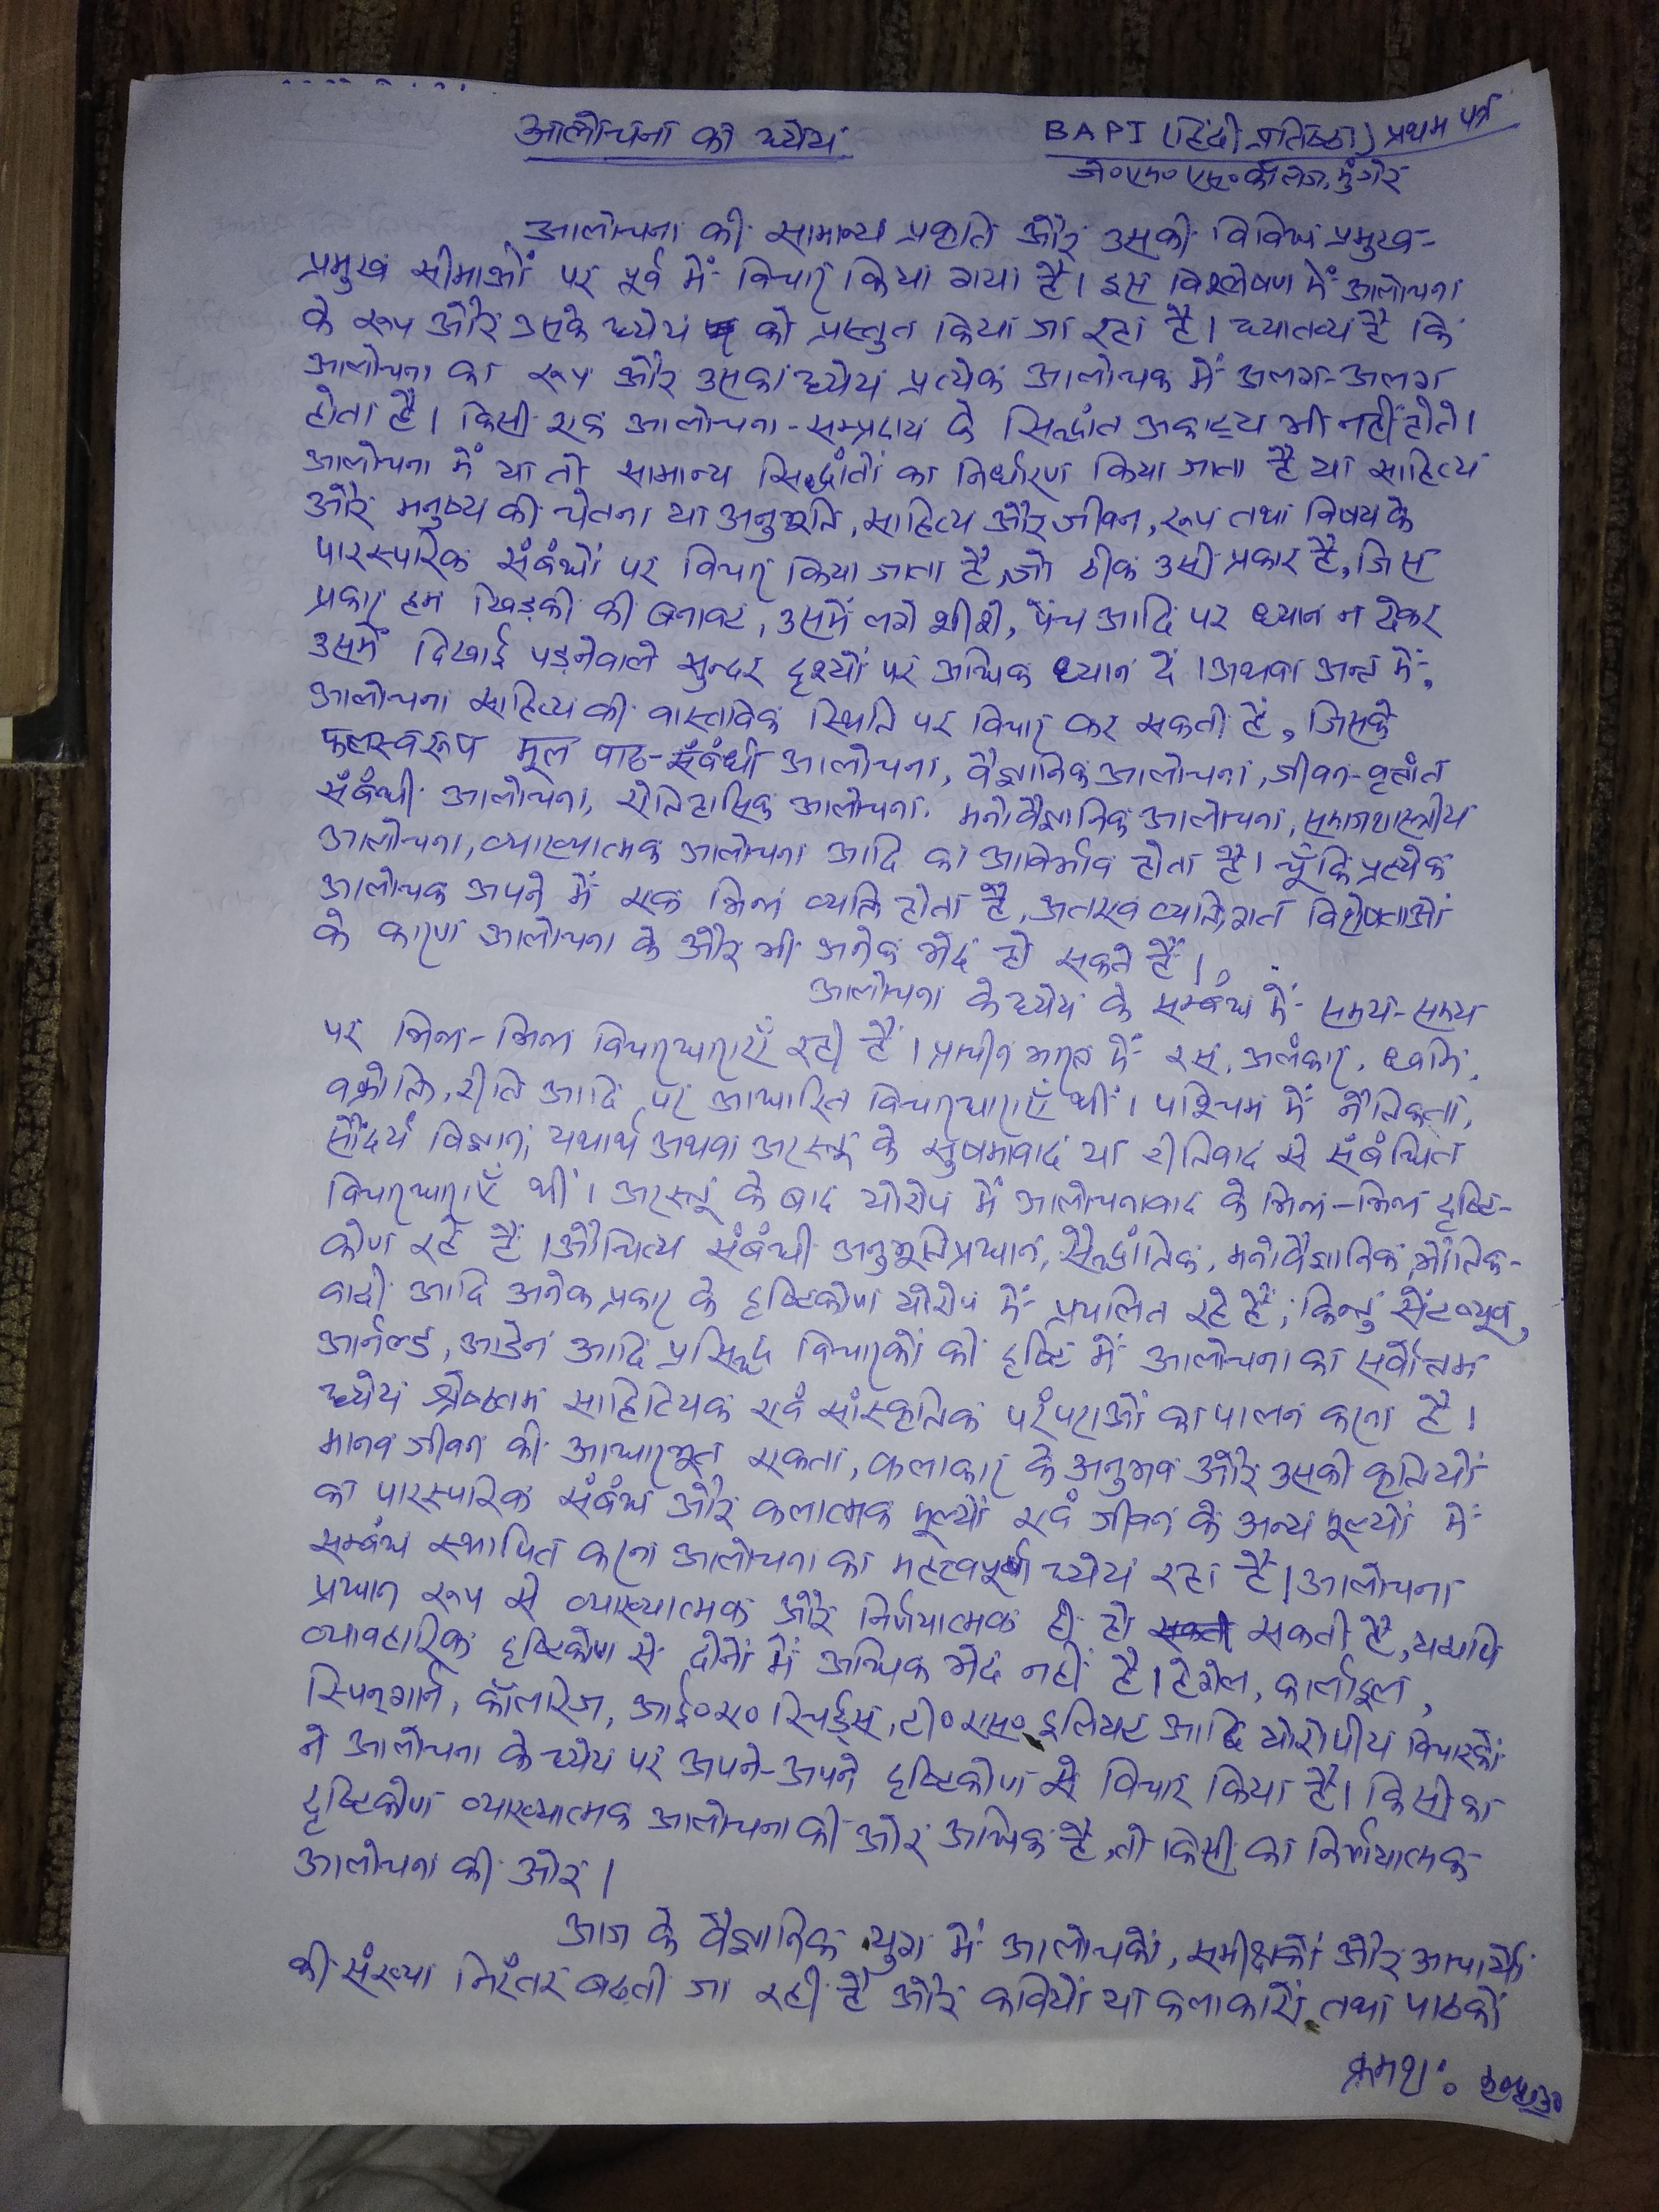 आलोचना का ध्येय
BAPI (हिंदी प्रतिष्ठा) प्रथम पत्र
जे०एम० एस० कॉलेज, मुंगेर
आलोचना की सामान्य प्रकृति और उसकी विविध प्रमुख-
प्रमुख सीमाओं पर पूर्व में विचार किया गया है। इस विश्लेषण में आलोचना
के रूप और उसके ध्येय को प्रस्तुत किया जा रहा है। ध्यातव्य है कि
आलोचना का रूप और उसका ध्येय प्रत्येक आलोचक में अलग-अलग
होता है। किसी एक आलोचना-सम्प्रदाय के सिद्धांत अकाट्य भी नहीं होते।
आलोचना में या तो सामान्य सिद्धांतों का निर्धारण किया जाता है या साहित्य
और मनुष्य की चेतना या अनुभूति, साहित्य और जीवन, रूप तथा विषय के
पारस्परिक संबंधों पर विचार किया जाता है, जो ठीक उसी प्रकार है, जिस
प्रकार हम खिड़की की बनावट, उसमें लगे शीशे, पेंच आदि पर ध्यान न देकर
उसमें दिखाई पड़नेवाले सुन्दर दृश्यों पर अधिक ध्यान दें। अथवा अन्त में,
आलोचना साहित्य की वास्तविक स्थिति पर विचार कर सकती है, जिसके
फलस्वरूप मूल पाठ-संबंधी आलोचना, वैज्ञानिक आलोचना, जीवन-वृत्तांत
संबंधी आलोचना, ऐतिहासिक आलोचना, मनोवैज्ञानिक आलोचना, समाजशास्त्रीय
आलोचना, व्याख्यात्मक आलोचना आदि का आविर्भाव होता है। चूँकि प्रत्येक
आलोचक अपने में एक भिन्न व्यक्ति होता है, अतएव व्यक्तिगत विशेषताओं
के कारण आलोचना के और भी अनेक भेद हो सकते हैं।
आलोचना के ध्येय के सम्बंध में समय-समय
पर भिन्न-भिन्न विचारधाराएँ रही हैं। प्राचीन भारत में रस, अलंकार, ध्वनि,
वक्रोक्ति, रीति आदि पर आधारित विचारधाराएँ थीं। पश्चिम में नैतिकता,
सौंदर्य विज्ञान, यथार्थ अथवा अरस्तू के सुषमावाद या रीतिवाद से संबंधित
विचारधाराएँ थीं। अरस्तू के बाद योरोप में आलोचनावाद के भिन्न-भिन्न दृष्टि-
कोण रहे हैं। औचित्य संबंधी अनुभूतिप्रधान, सैद्धांतिक, मनोवैज्ञानिक, भौतिक-
वादी आदि अनेक प्रकार के दृष्टिकोण योरोप में प्रचलित रहे हैं, किन्तु सेंट ब्यूव,
आर्नल्ड, आडेन आदि प्रसिद्ध विचारकों की दृष्टि में आलोचना का सर्वोत्तम
ध्येय श्रेष्ठतम साहित्यिक एवं सांस्कृतिक परंपराओं का पालन करना है।
मानव जीवन की आधारभूत एकता, कलाकार के अनुभव और उसकी कृतियों
का पारस्परिक संबंध और कलात्मक मूल्यों एवं जीवन के अन्य मूल्यों में
सम्बंध स्थापित करना आलोचना का महत्वपूर्ण ध्येय रहा है। आलोचना
प्रधान रूप से व्याख्यात्मक और निर्णयात्मक ही हो सकती है, यद्यपि
व्यावहारिक दृष्टिकोण से दोनों में अधिक भेद नहीं है। हेगेल, कार्लाइल,
स्पिनगार्न, कॉलरिज, आई०ए० रिचर्ड्स, टी० एस० इलियट आदि योरोपीय विचारकों
ने आलोचना के ध्येय पर अपने-अपने दृष्टिकोण से विचार किया है। किसी का
दृष्टिकोण व्याख्यात्मक आलोचना की ओर अधिक है, तो किसी का निर्णयात्मक
आलोचना की ओर।
आज के वैज्ञानिक युग में आलोचकों, समीक्षकों और आचार्यों
की संख्या निरंतर बढ़ती जा रही है और कवियों या कलाकारों तथा पाठकों
क्रमशः